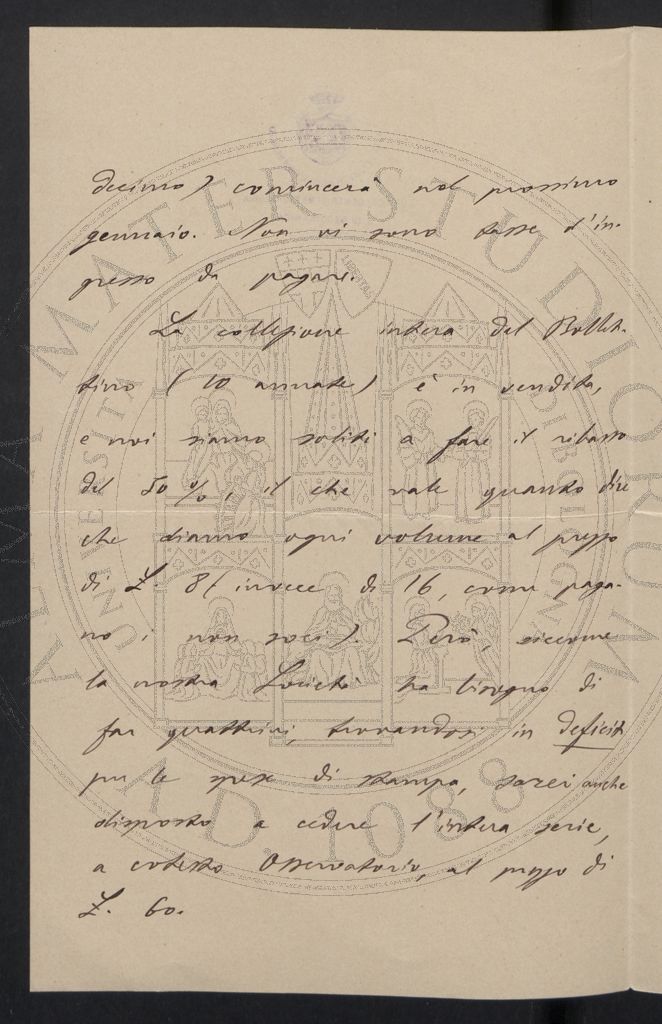 decimo) comincerà nel prossimo
gennaio. Non vi sono tasse d'in-
gresso da pagare.
La collezione intera del Bollet-
tino (10 annate) è in vendita,
e noi siamo soliti a fare il ribasso
del 50 %, il che vale quanto dire
che diamo ogni volume al prezzo
di L. 8 (invece di 16, come paga-
no i non soci). Però, siccome
la nostra Società ha bisogno di
far quattrini, trovandosi in deficit
per le spese di stampa, sarei anche
disposto a cedere l'intera serie,
a codesto Osservatorio, al prezzo di
L. 60.
ALMA MATER STUDIORUM
UNIVERSITÀ DI BOLOGNA
A.D. 1088
LIBERTAS